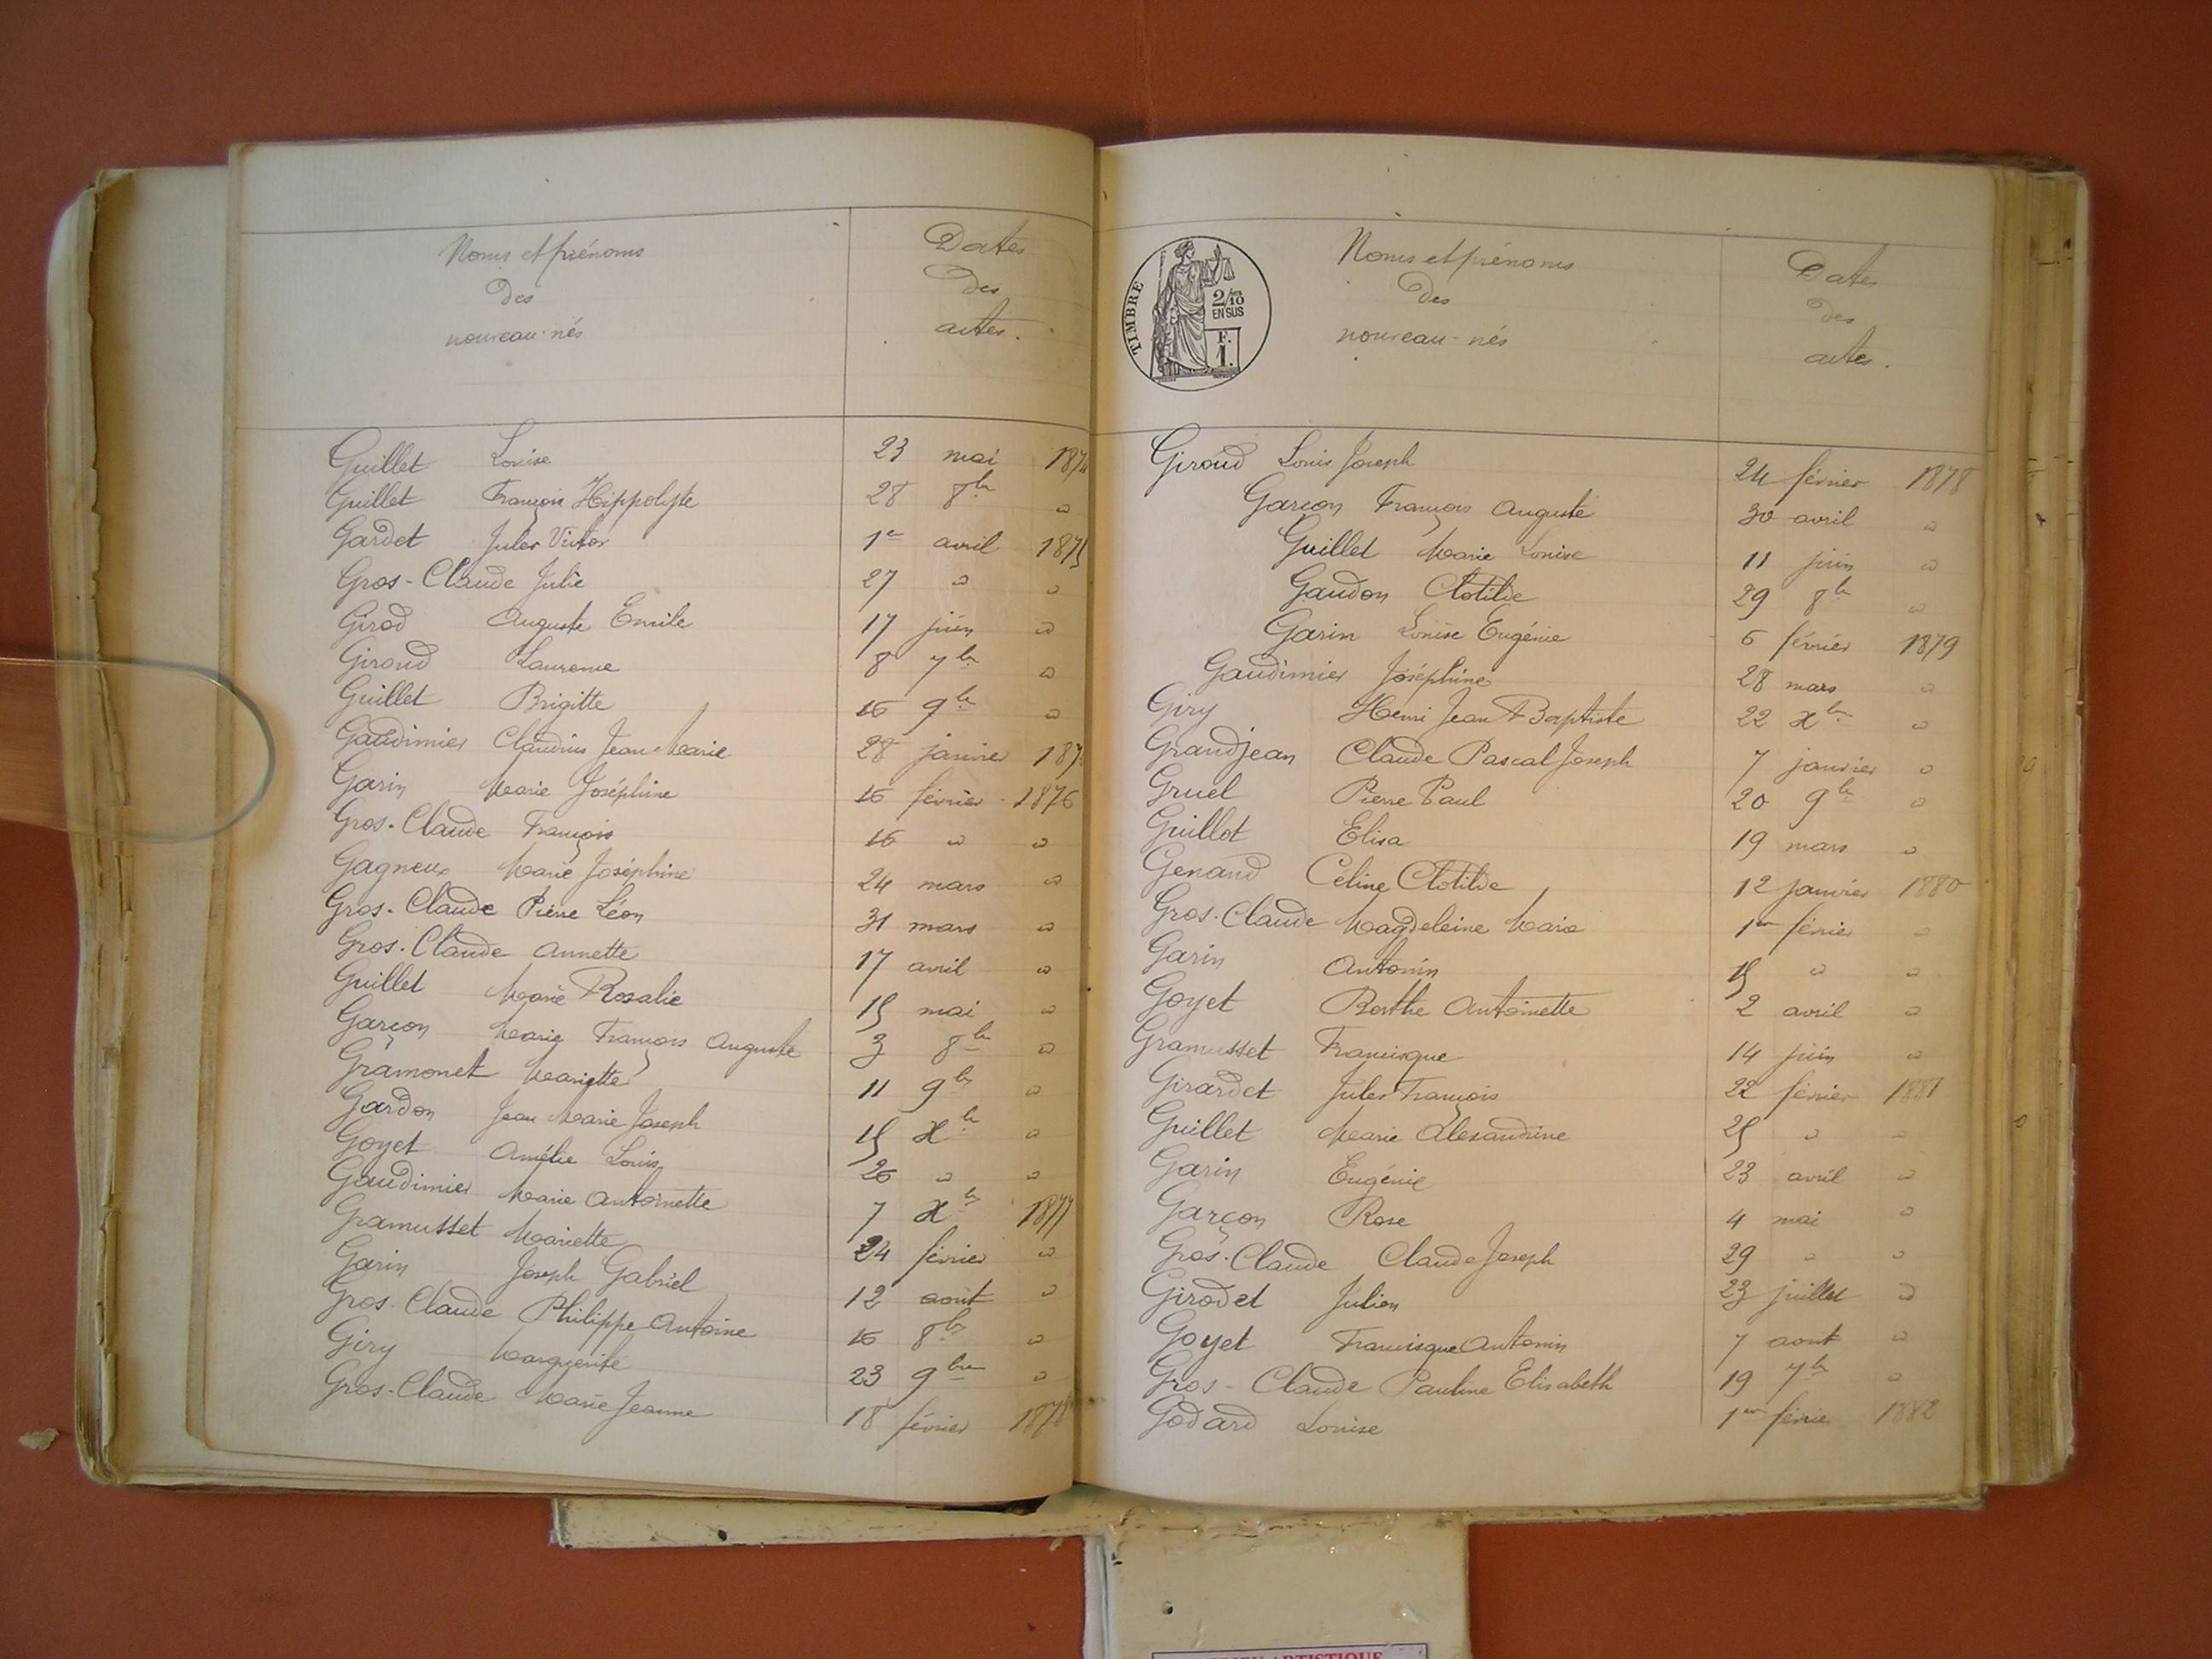 Noms et prénoms
des
nouveau-nés
Dates
des
actes.
Guillet Louise 23 mai 1874
Guillet François Hippolyte 28 8bre "
Gardet Jules Victor 1er avril 1875
Gros-Claude Julie 27 " "
Girod Auguste Emile 17 juin "
Giroud Laurence 8 7bre "
Guillet Brigitte 16 9bre "
Gaudimier Claudius Jean Marie 28 janvier 187
Garin Marie Joséphine 16 février 1876
Gros-Claude François 16 " "
Gagneux Marie Joséphine 24 mars "
Gros-Claude Pierre Léon 31 mars "
Gros-Claude Annette 17 avril "
Guillet Marie Rosalie 15 mai "
Garçon Marie François Auguste 3 8bre "
Gramonet Mariette 11 9bre "
Gardon Jean Marie Joseph 15 Xbre "
Goyet Amélie Louis 26 " "
Gaudimier Marie Antoinette 7 Xbre 1877
Gramusset Mariette 24 février "
Garin Joseph Gabriel 12 août "
Gros-Claude Philippe Antoine 16 8bre "
Giry Marguerite 23 9bre "
Gros-Claude Marie Jeanne 18 février 1878
TIMBRE
2/10
EN SUS
F.
1.
Noms et prénoms
des
nouveau-nés
Dates
des
actes.
Giroud Louis Joseph 24 février 1878
Garçon François Auguste 30 avril "
Guillet Marie Louise 11 juin "
Gaudon Clotilde 29 8bre "
Garin Louise Eugénie 6 février 1879
Gaudimier Joséphine 28 mars "
Giry Henri Jean Baptiste 22 Xbre "
Grandjean Claude Pascal Joseph 7 janvier "
Gruel Pierre Paul 20 9bre "
Guillot Elisa 19 mars "
Genand Céline Clotilde 12 janvier 1880
Gros-Claude Magdeleine Marie 1er février "
Garin Antonin 15 " "
Goyet Berthe Antoinette 2 avril "
Gramusset Francisque 14 juin "
Girardet Jules François 22 février 1881
Guillet Marie Alexandrine 25 " "
Garin Eugénie 23 avril "
Garçon Rose 4 mai "
Gros-Claude Claude Joseph 29 " "
Girodet Julien 23 juillet "
Goyet Francisque Antonin 7 août "
Gros-Claude Pauline Elisabeth 19 7bre "
Godard Louise 1er février 1882